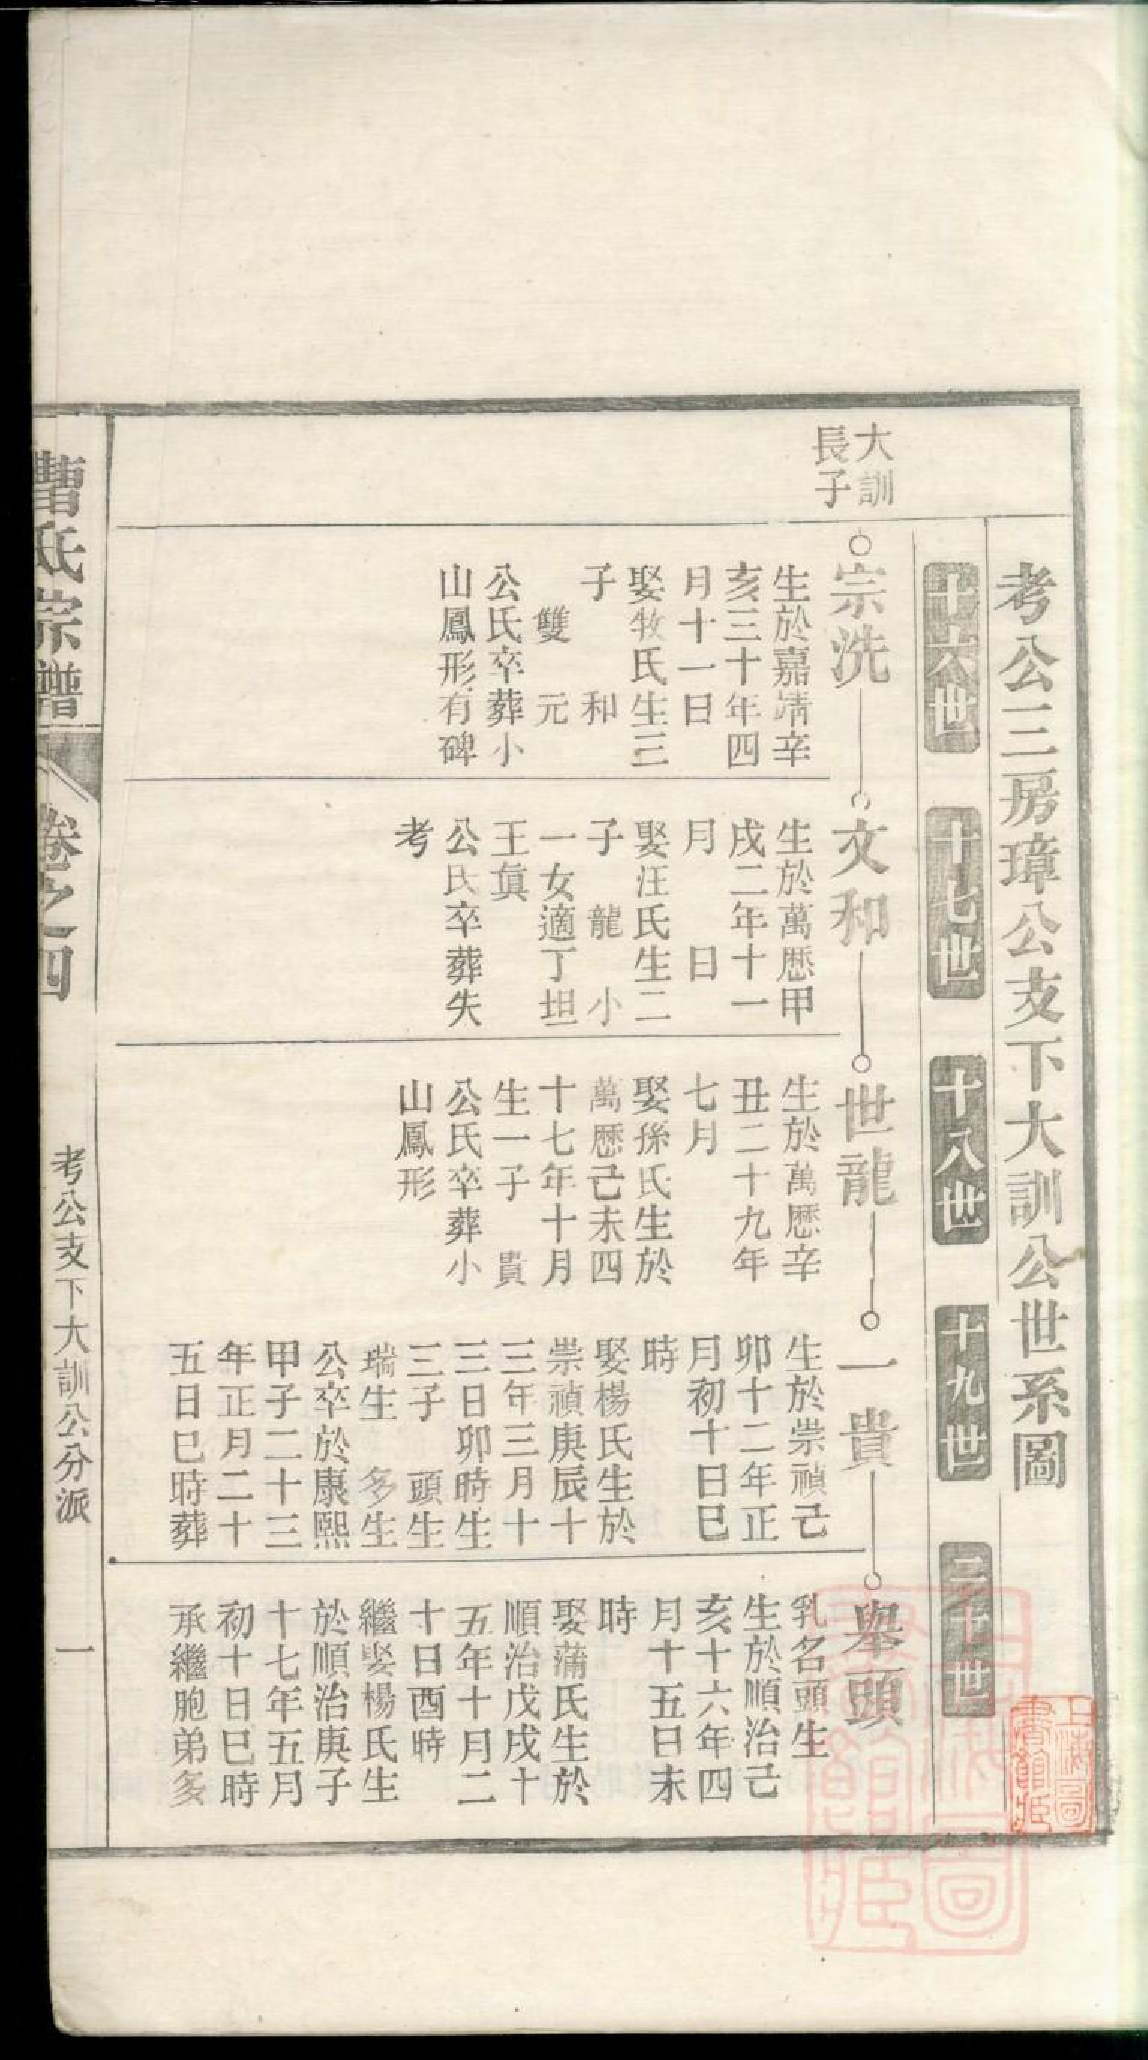 考公三房璋公支下大訓公世系圖
十六世
十七世
十八世
十九世
二十世
大訓
長子
宗洗
生於嘉靖辛
亥三十年四
月十一日
娶牧氏生三
子 和
雙 元
公氏卒葬小
山鳳形有碑
文和
生於萬厯甲
戌二年十一
月 日
娶汪氏生二
子 龍 小
一女適丁坦
王眞
公氏卒葬失
考
世龍
生於萬厯辛
丑二十九年
七月
娶孫氏生於
萬厯己未四
十七年十月
生一子 貴
公氏卒葬小
山鳳形
一貴
生於崇禎己
卯十二年正
月初十日巳
時
娶楊氏生於
崇禎庚辰十
三年三月十
三日卯時生
三子 頭生
瑞生 多生
公卒於康熙
甲子二十三
年正月二十
五日巳時葬
舉頭
乳名頭生
生於順治己
亥十六年四
月十五日未
時
娶蒲氏生於
順治戊戌十
五年十月二
十日酉時
繼娶楊氏生
於順治庚子
十七年五月
初十日巳時
承繼胞弟多
曹氏宗譜
卷之四
考公支下大訓公分派
一
上海圖
書館藏
上海圖
書館藏